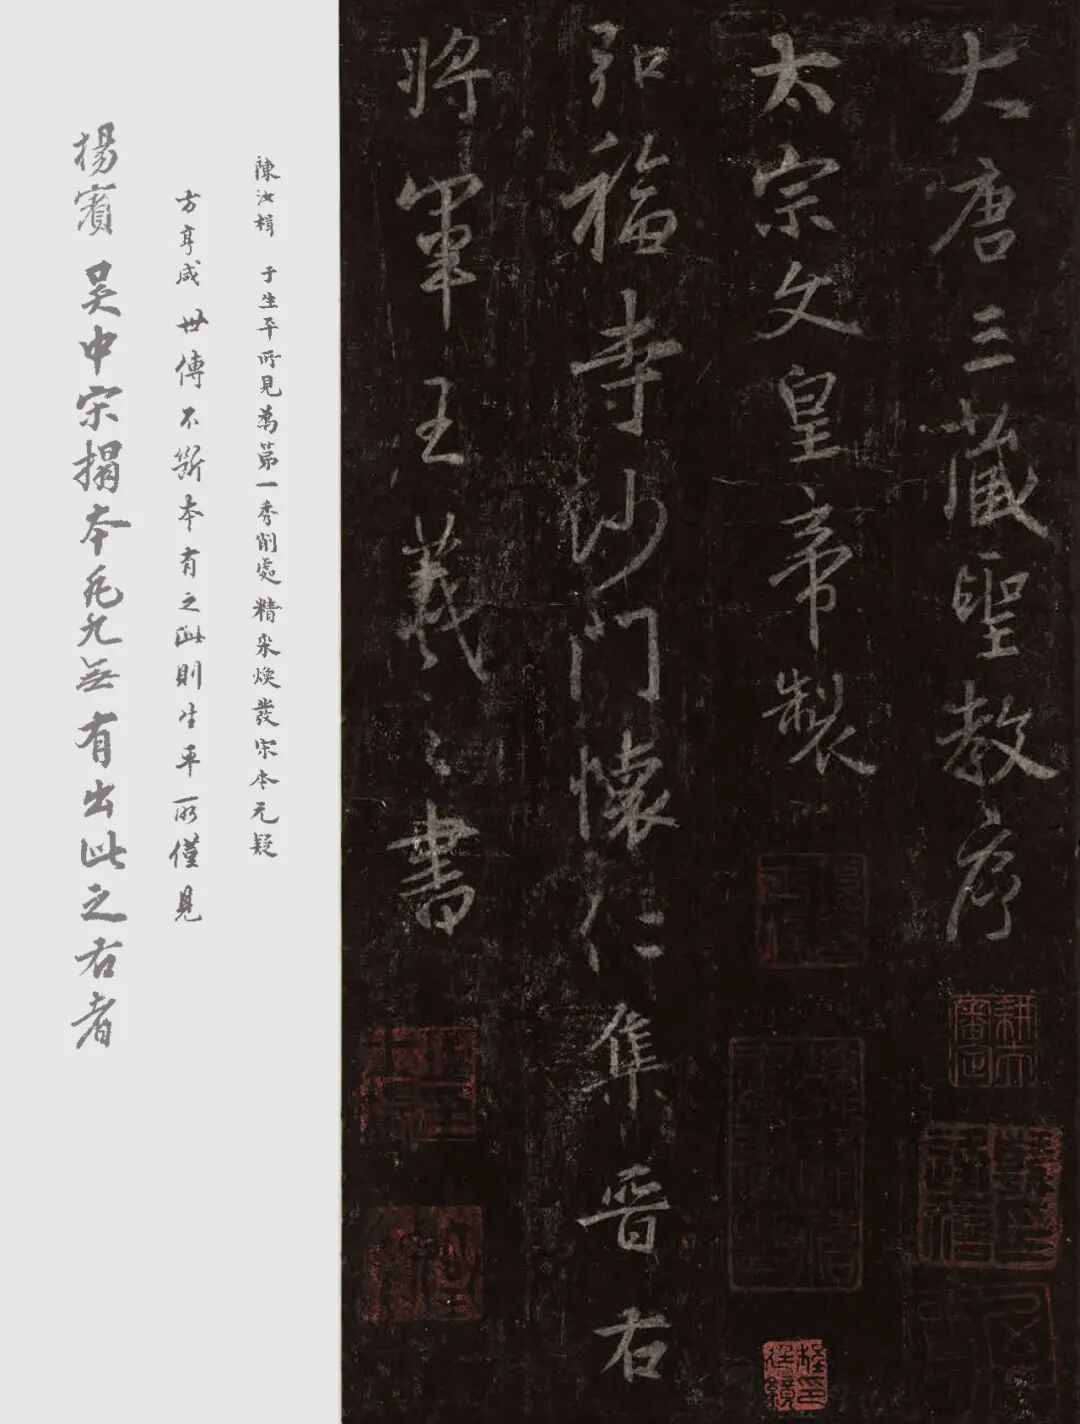 大唐三藏聖教序
太宗文皇帝製
弘福寺沙門懷仁集晉右
將軍王羲之書
陳汝楫 于生平所見為第一秀削處精采煥發宋本无疑
方亨咸 世傳不斷本有之此則生平所僅見
楊賓 吳中宋搨本死九無有出此之右者